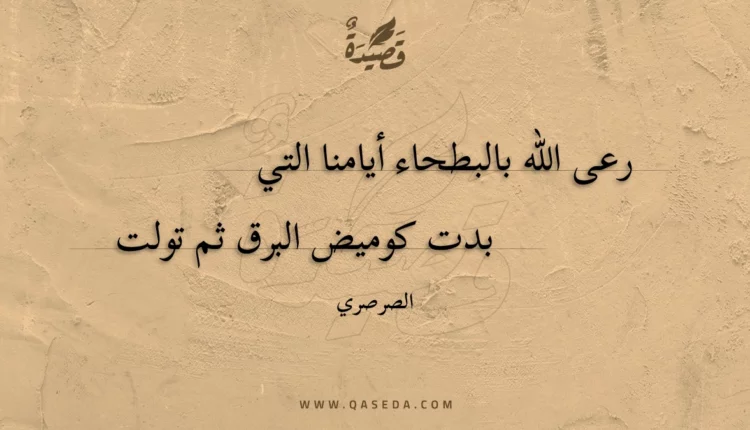 قَصِيْدَةٌ
رعى الله بالبطحاء أيامنا التي
بدت كوميض البرق ثم تولت
الصرصري
WWW.QASEDA.COM